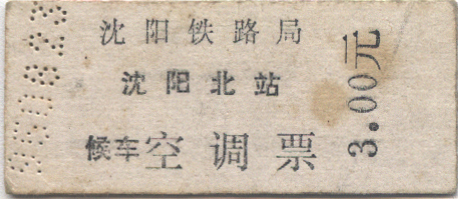 沈阳铁路局
沈阳北站
候车空调票
3.00元